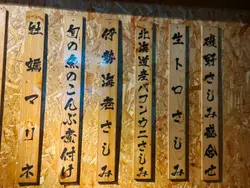 磯野さしみ盛合せ
生トロさしみ
北海道産バフンウニさしみ
伊勢海老さしみ
旬の魚のこんぶ煮付け
牡蠣マリネ